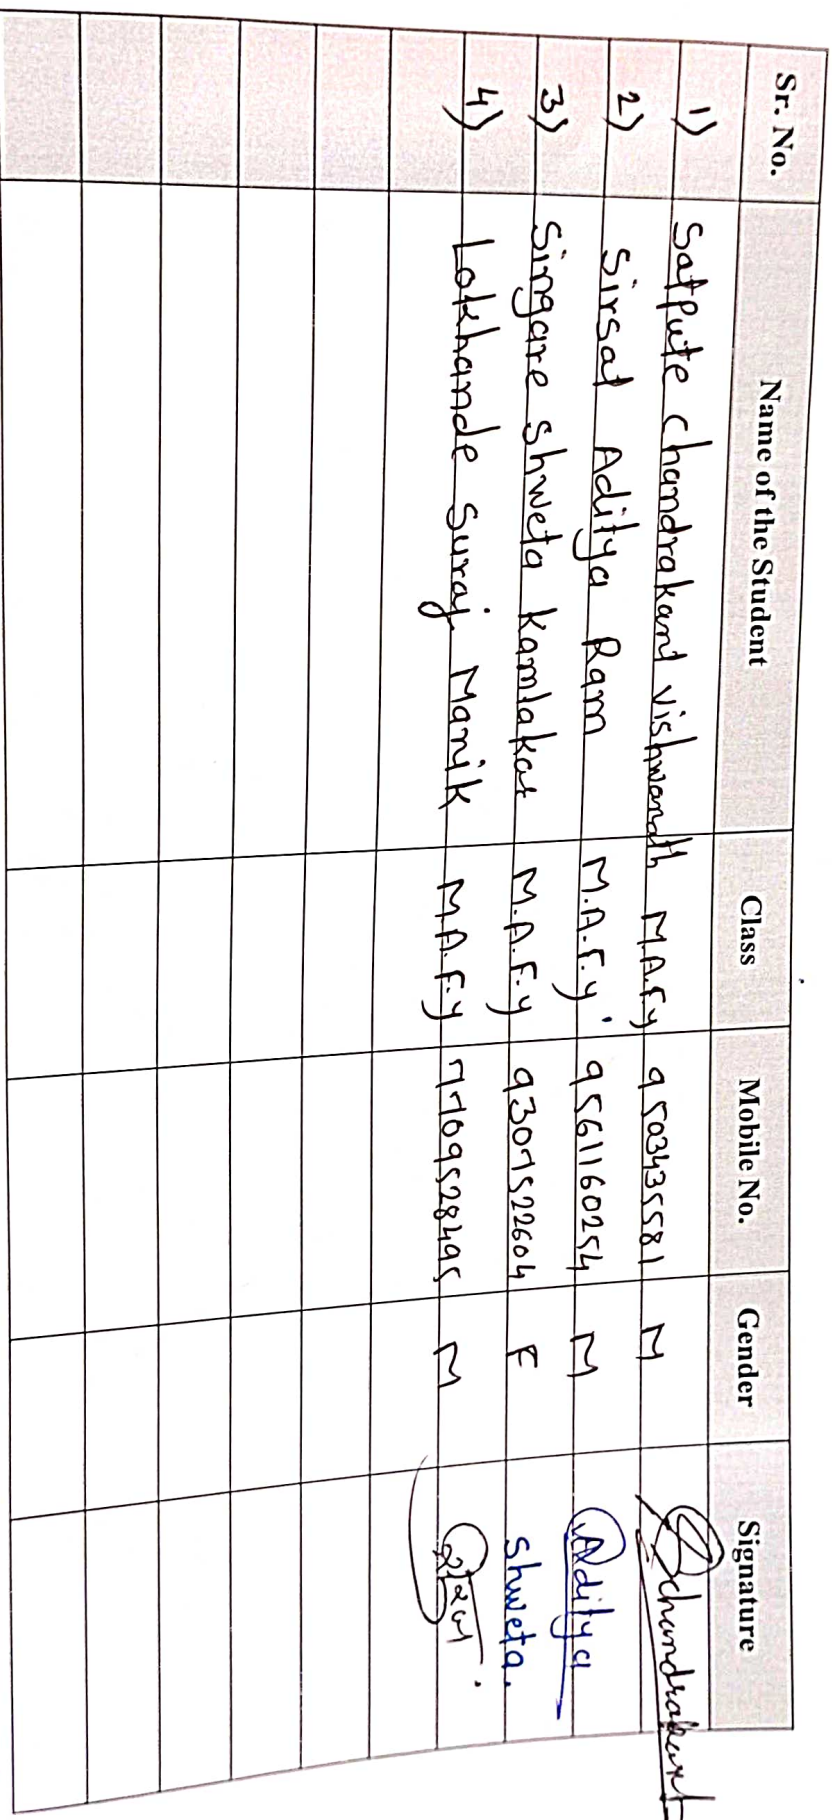 Sr. No. Name of the Student Class Mobile No. Gender Signature
1) Satpute chandrakant vishwanath M.A.F.y 9503435581 M Chandrakant
2) Sirsat Aditya Ram M.A.F.y. 9561160254 M Aditya
3) Singare Shweta Kamlakar M.A.F.y 9307522604 F Shweta.
4) Lokhande Suraj Manik M.A.F.y 7709528495 M